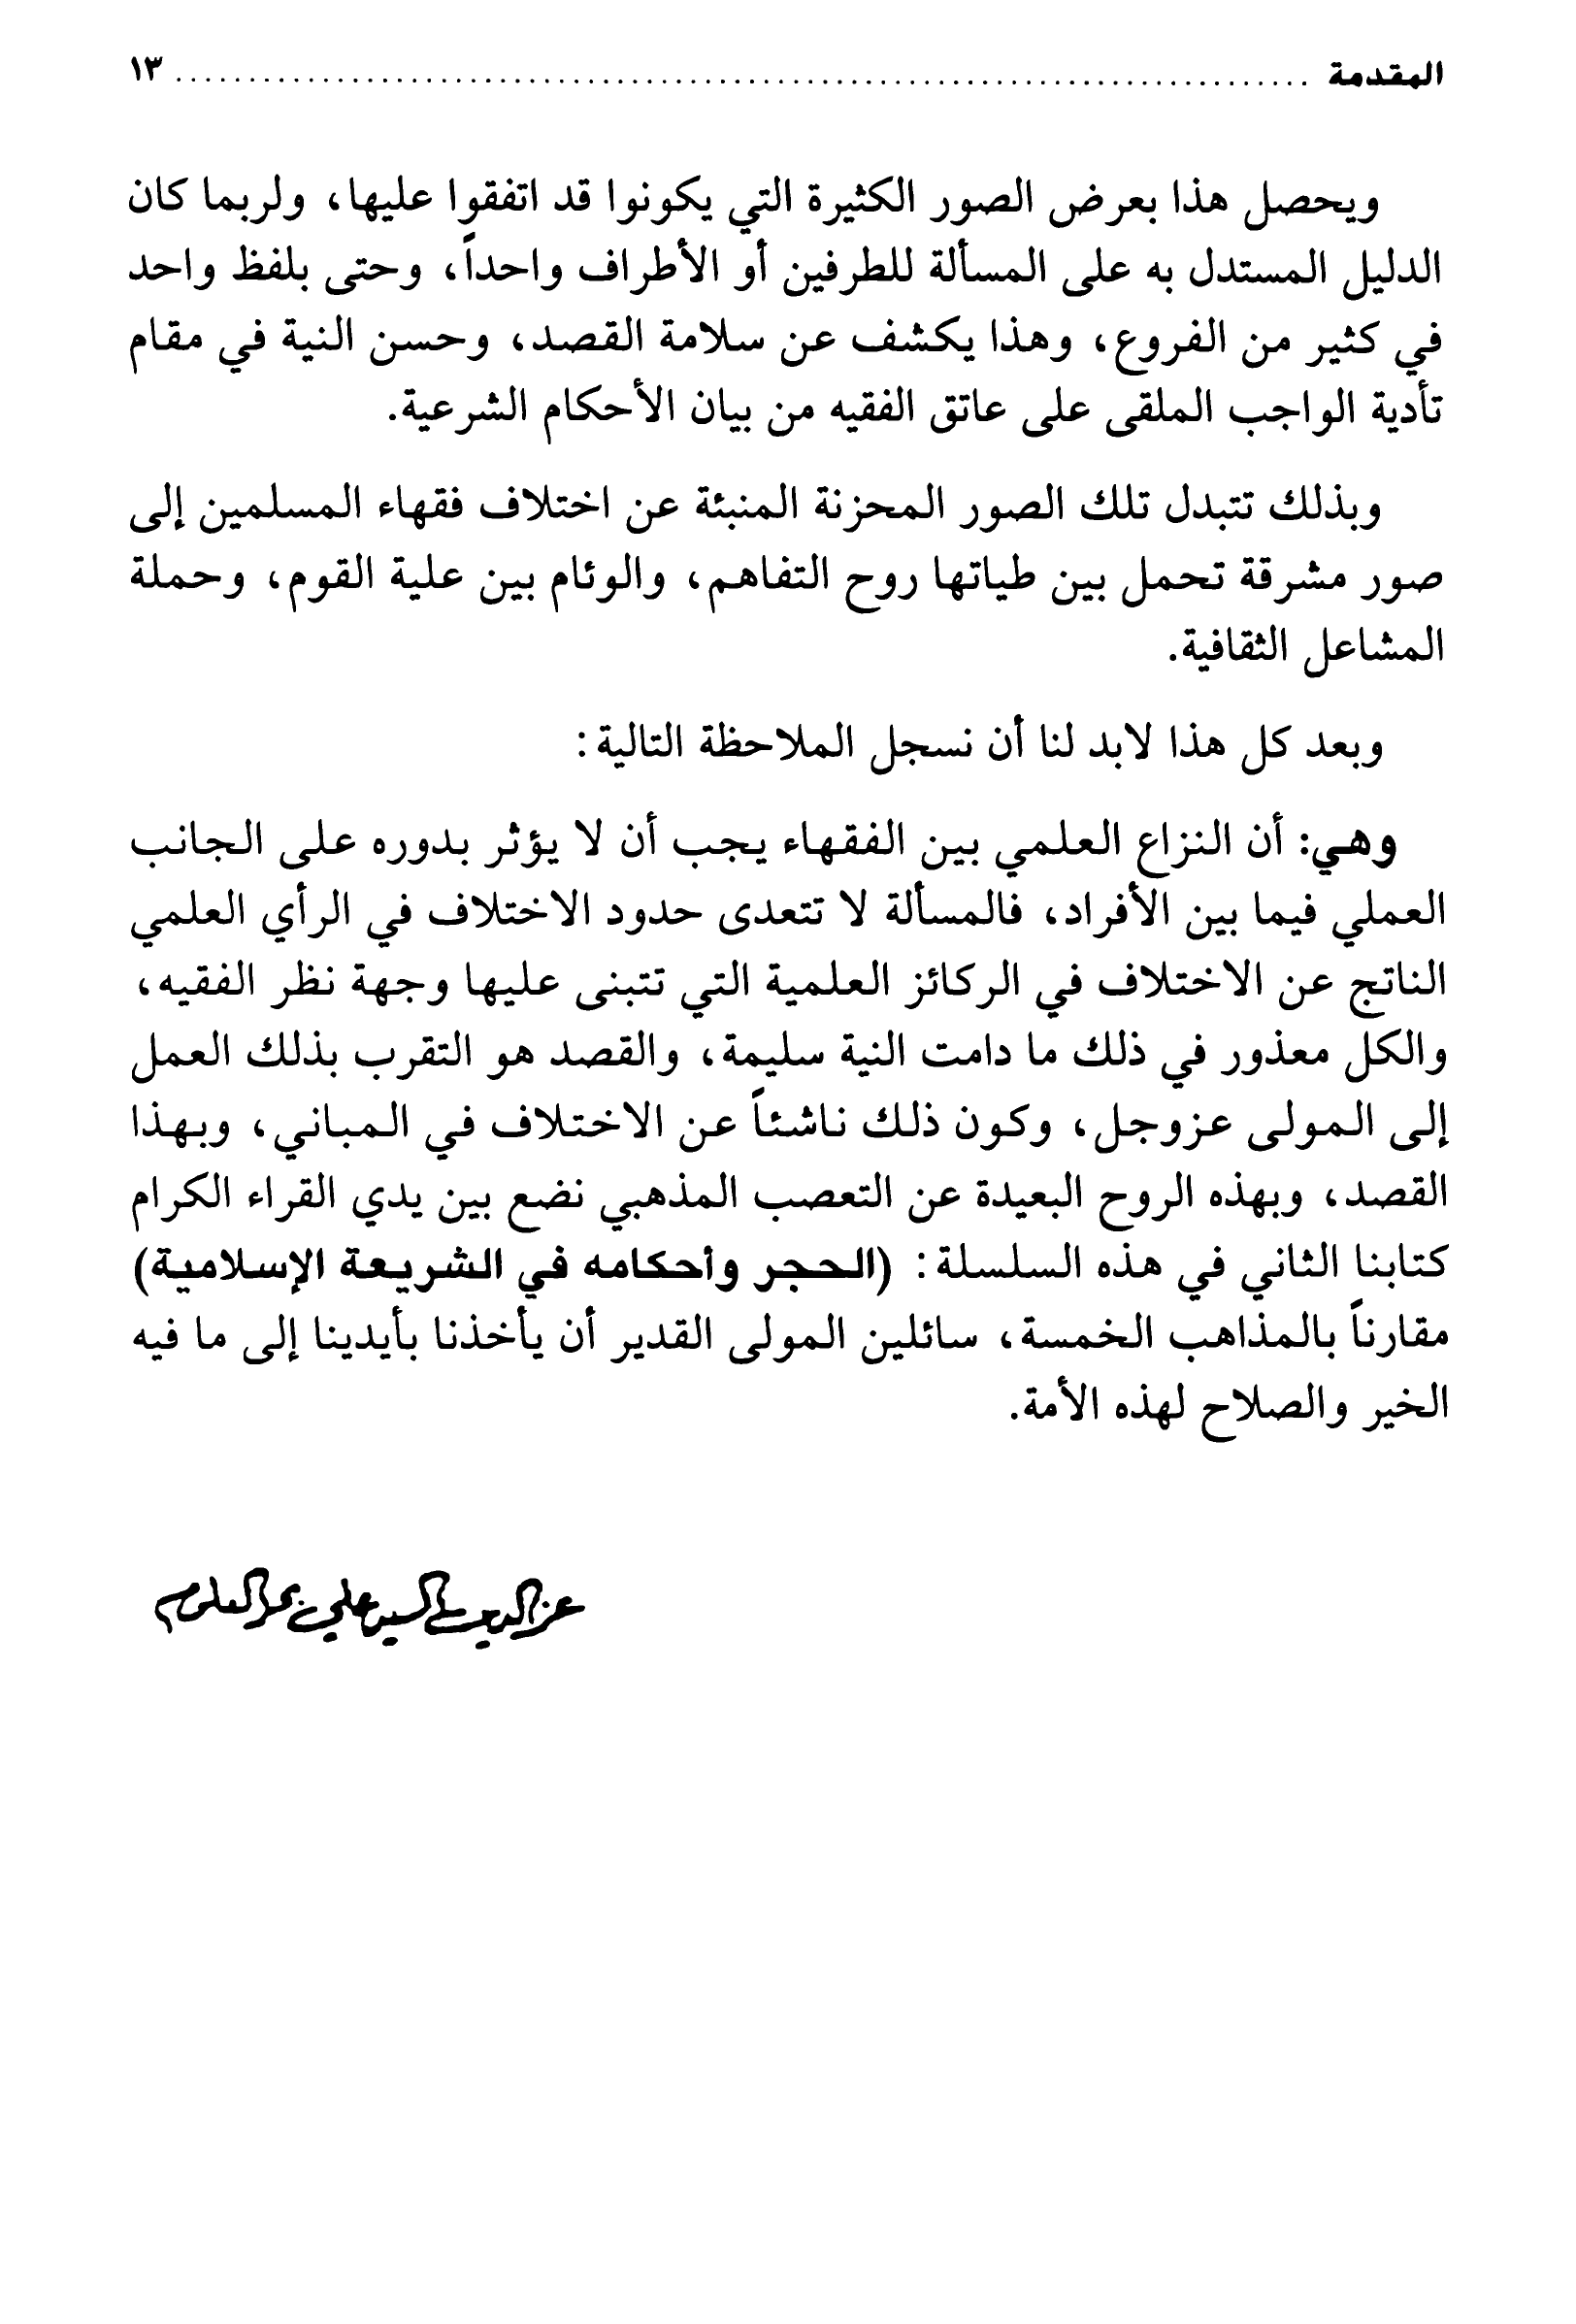 المقدمة ........................................................................ ١٣
ويحصل هذا بعرض الصور الكثيرة التي يكونوا قد اتفقوا عليها، ولربما كان
الدليل المستدل به على المسألة للطرفين أو الأطراف واحداً، وحتى بلفظ واحد
في كثير من الفروع، وهذا يكشف عن سلامة القصد، وحسن النية في مقام
تأدية الواجب الملقى على عاتق الفقيه من بيان الأحكام الشرعية.
وبذلك تتبدل تلك الصور المحزنة المنبئة عن اختلاف فقهاء المسلمين إلى
صور مشرقة تحمل بين طياتها روح التفاهم، والوئام بين علية القوم، وحملة
المشاعل الثقافية.
وبعد كل هذا لابد لنا أن نسجل الملاحظة التالية:
وهي: أن النزاع العلمي بين الفقهاء يجب أن لا يؤثر بدوره على الجانب
العملي فيما بين الأفراد، فالمسألة لا تتعدى حدود الاختلاف في الرأي العلمي
الناتج عن الاختلاف في الركائز العلمية التي تتبنى عليها وجهة نظر الفقيه،
والكل معذور في ذلك ما دامت النية سليمة، والقصد هو التقرب بذلك العمل
إلى المولى عزوجل، وكون ذلك ناشئاً عن الاختلاف في المباني، وبهذا
القصد، وبهذه الروح البعيدة عن التعصب المذهبي نضع بين يدي القراء الكرام
كتابنا الثاني في هذه السلسلة: (الحجر وأحكامه في الشريعة الإسلامية)
مقارناً بالمذاهب الخمسة، سائلين المولى القدير أن يأخذنا بأيدينا إلى ما فيه
الخير والصلاح لهذه الأمة.
عز الدين السيد علي بحر العلوم